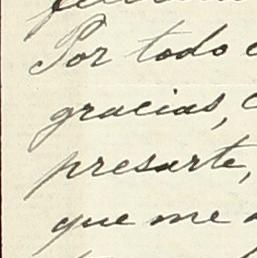 Por todo
gracias,
presarte,
que me